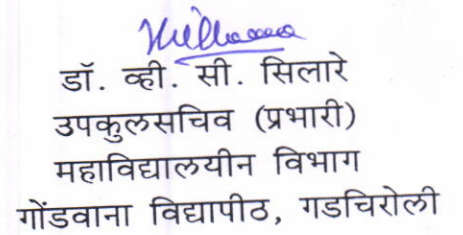 डॉ. व्ही. सी. सिलारे
उपकुलसचिव (प्रभारी)
महाविद्यालयीन विभाग
गोंडवाना विद्यापीठ, गडचिरोली